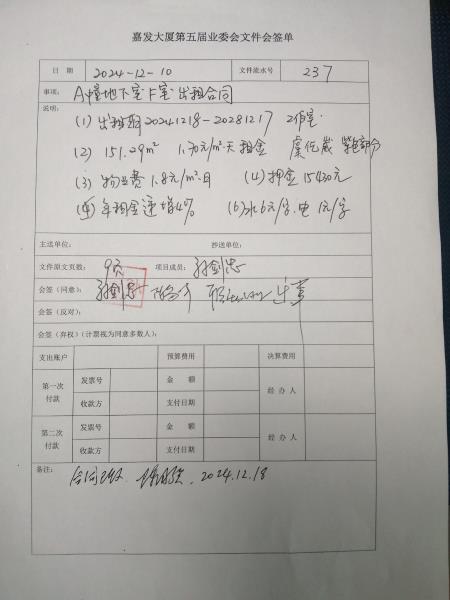 嘉发大厦第五届业委会文件会签单
日 期 2024-12-10 文件流水号 237
事项: A幢地下室F室出租合同
说明:
(1) 出租期20241218-20281217 工作室
(2) 151.29m² 1.70元/m²·天 租金
(3) 物业费1.8元/m²·月 (4) 押金15430元
年租金递增4% (6) 水6元/字、电1元/字
主送单位: 抄送单位:
文件原文页数: 9页 项目成员: 孙剑忠
会签(同意): 孙剑忠
会签(反对):
会签(弃权)(计票视为同意多数人):
支出账户 预算费用 决算费用
第一次付款 发票号 金 额 经 办 人
收款方 支付日期
第二次付款 发票号 金 额 经 办 人
收款方 支付日期
备注:
合同 2024.12.18